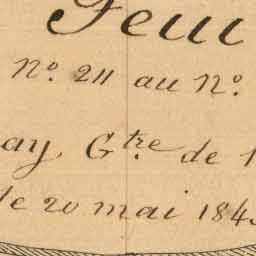 Feui
N.º 211 au N.º
ay, G.tre de l
le 20 mai 184